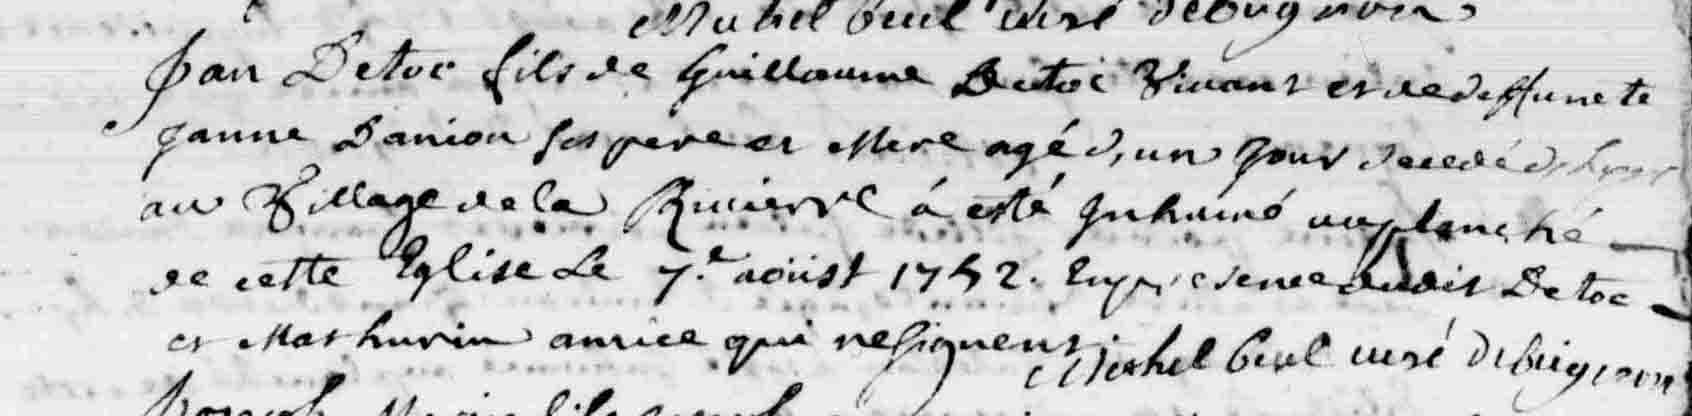 Michel beul curé debugnon
Jan Detoc fils de Guillaume Detoc Vivant et de deffunete
Janne Danion ses pere et Mere agé d'un Jour decedé d'hyer
au Village de la Riuierre á esté Inhumé au planché
de cette Eglise Le 7.e aoüst 1752. En presence dudit Detoc
et Mathurin amice qui ne signent. Michel beul curé
Joseph fils